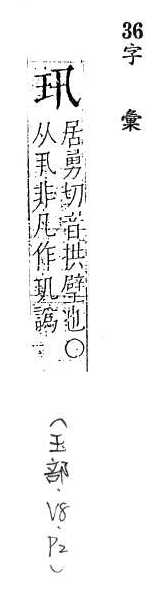 36
字彙
玑
居勇切音拱璧也〇
从丮非凡作玑譌
（玉部．V8．P2）